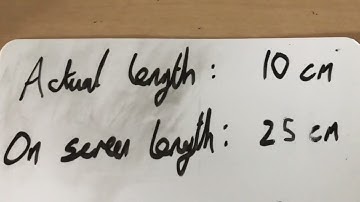 Actual length: 10 cm
On screen length: 25 cm